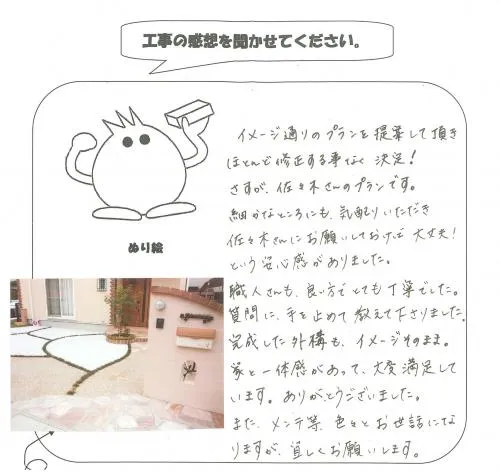 工事の感想を聞かせてください。
イメージ通りのプランを提案して頂き
ほとんど修正する事なく決定!
さすが、佐々木さんのプランです。
細かなところにも、気配りいただき
佐々木さんにお願いしておけば大丈夫!
という安心感がありました。
職人さんも、良い方でとても丁寧でした。
質問に、手を止めて教えて下さりました。
完成した外構も、イメージそのまま。
家と一体感があって、大変満足して
います。ありがとうございました。
また、メンテ等、色々とお世話にな
りますが、宜しくお願いします。
ぬり絵